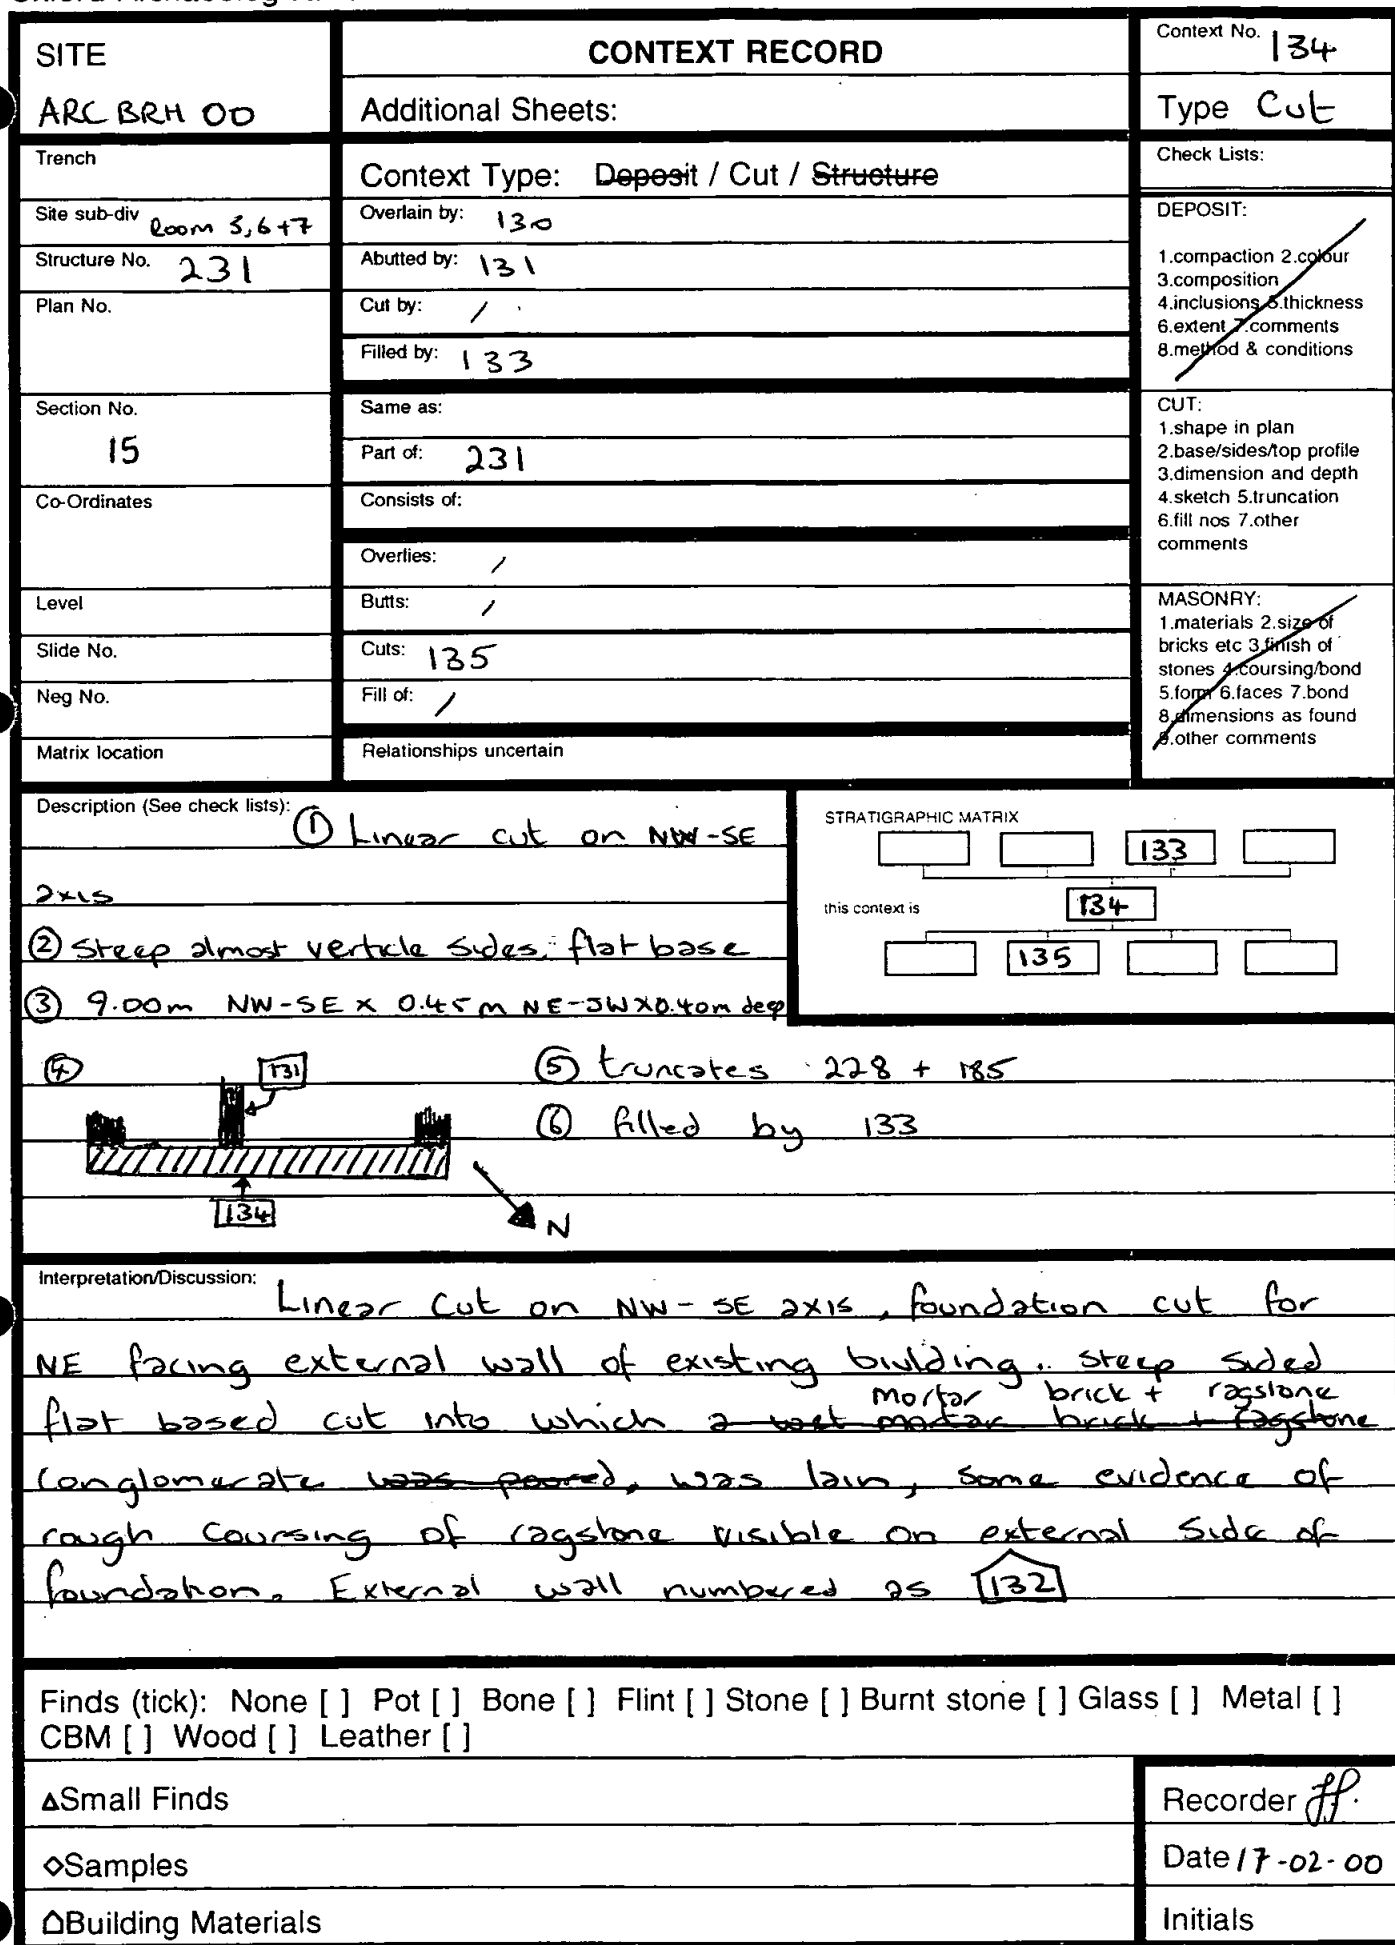 SITE
ARC BRH 00
CONTEXT RECORD
Additional Sheets:
Context No. 134
Type Cut
Trench
Site sub-div Room 5,6+7
Structure No. 231
Plan No.
Section No.
15
Co-Ordinates
Level
Slide No.
Neg No.
Matrix location
Context Type: Deposit / Cut / Structure
Overlain by: 130
Abutted by: 131
Cut by: /
Filled by: 133
Same as:
Part of: 231
Consists of:
Overlies: /
Butts: /
Cuts: 135
Fill of: /
Relationships uncertain
Check Lists:
DEPOSIT:
1.compaction 2.colour
3.composition
4.inclusions 5.thickness
6.extent 7.comments
8.method & conditions
CUT:
1.shape in plan
2.base/sides/top profile
3.dimension and depth
4.sketch 5.truncation
6.fill nos 7.other
comments
MASONRY:
1.materials 2.size of
bricks etc 3.finish of
stones 4.coursing/bond
5.form 6.faces 7.bond
8.dimensions as found
9.other comments
Description (See check lists): ① Linear cut on NW-SE
axis
② Steep almost verticle sides, flat base
③ 9.00m NW-SE x 0.45m NE-SW x 0.40m deep
STRATIGRAPHIC MATRIX
133
this context is 134
135
④
131
134
N
⑤ truncates 228 + 185
⑥ filled by 133
Interpretation/Discussion: Linear Cut on NW-SE axis, foundation cut for
NE facing external wall of existing biulding. Steep sided
mortar brick + ragstone
flat based cut into which a wet mortar brick + ragstone
conglomerate was poured, was lain, some evidence of
rough coursing of ragstone visible on external side of
foundation. External wall numbered as 132
Finds (tick): None [ ] Pot [ ] Bone [ ] Flint [ ] Stone [ ] Burnt stone [ ] Glass [ ] Metal [ ]
CBM [ ] Wood [ ] Leather [ ]
△Small Finds
◇Samples
Building Materials
Recorder
Date 17-02-00
Initials